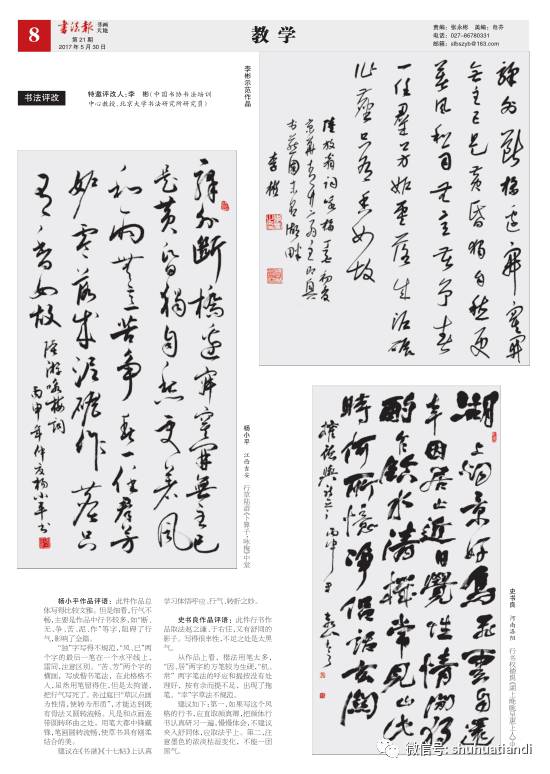 8
书法报 书画天地
第21期
2017年5月30日
教学
责编：张永彬 美编：赵乔
电话：027-86780331
邮箱：sfbszyb@163.com
书法评改
特邀评改人：李 彬（中国书协书法培训
中心教授、北京大学书法研究所研究员）
李彬示范作品
驿外断桥边寂寞开
无主已是黄昏独自愁更
著风和雨无意苦争春
一任群芳妒零落成泥碾
作尘只有香如故
李彬
驿外断桥边寂寞开无主已
是黄昏独自愁更著风
和雨无意苦争春一任群芳
妒零落成泥碾作尘只
有香如故 陆游咏梅词
丙申年仲夏杨小平书
杨小平 江西吉安 行草陆游《卜算子·咏梅》中堂
湖上湖景好鸟飞云自还
幸因居山近日觉性情闲
酌乞饮水清机常见山此
时何所忆净侣话玄关
史书良 河南洛阳
杨小平作品评语：此件作品总
体写得比较文雅。但是细看，行气不
畅，主要是作品中行书较多，如“断、
无、争、苦、泥、作”等字，阻碍了行
气，影响了全篇。
“独”字写得不规范，“风、已”两
个字的最后一笔在一个水平线上，
雷同，注意区别。“苦、芳”两个字的
横画，写成楷书笔法，在此格格不
入，虽然用笔留得住，但是太拘谨，
把行气写死了。孙过庭曰“草以点画
为情性，使转为形质”，才能达到既
有骨法又圆转流畅。凡是和点画连
带圆转环曲之处，用笔大都中锋藏
锋，笔画圆转流畅，使草书具有刚柔
结合的美。
建议在《书谱》《十七帖》上认真
学习体悟呼应、行气、转折之妙。
史书良作品评语：此件行书作
品取法赵之谦、于右任，又有舒同的
影子。写得很率性，不足之处是太黑
气。
从作品上看，楷法用笔太多，
“因、居”两字的方笔较为生硬，“机、
常”两字笔法的呼应和提按没有处
理好，按有余而提不足，出现了拖
笔。“幸”字草法不规范。
建议如下：第一，如果写这个风
格的行书，应直取颜真卿，把颜体行
书认真研习一遍，慢慢体会，不建议
夹入舒同体，应取法乎上。第二，注
意墨色的浓淡枯湿变化，不能一团
黑气。
微信号: shuhuatiandi